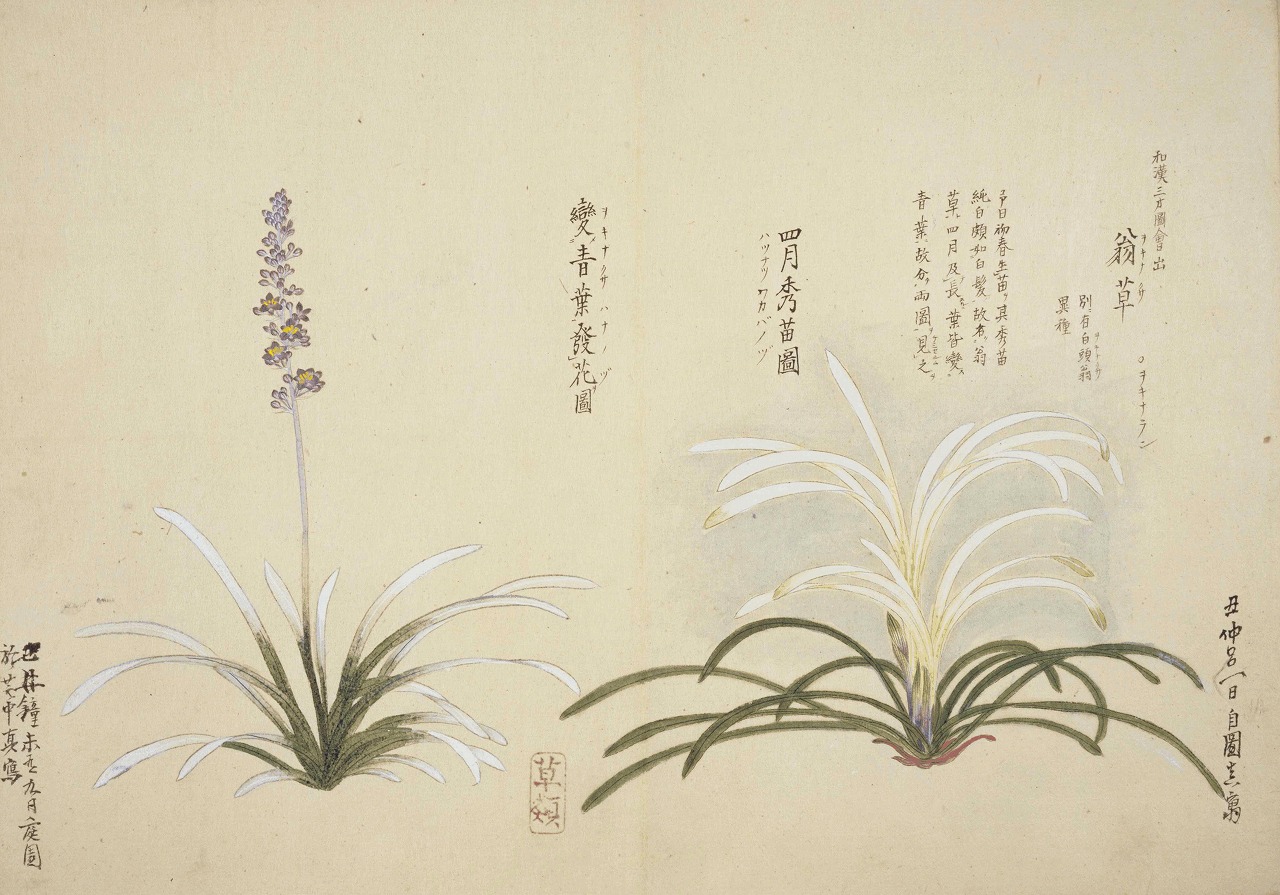 和漢三才圖會出
翁草
ヲキナクサ
○ヲキナラン
別ニ有白頭翁
ヲキナクサ
異種
予曰初春生苗ヲ其秀苗
純白頗如白髮故有翁
草四月及長葉皆變
青葉故分兩圖見之
四月秀苗圖
ハツナツワカバノヅ
ヲキナクサ ハナノヅ
變青葉發花圖
丑仲呂一日自圖真寫
鐘
九日
庭圖
於
中真寫
草類